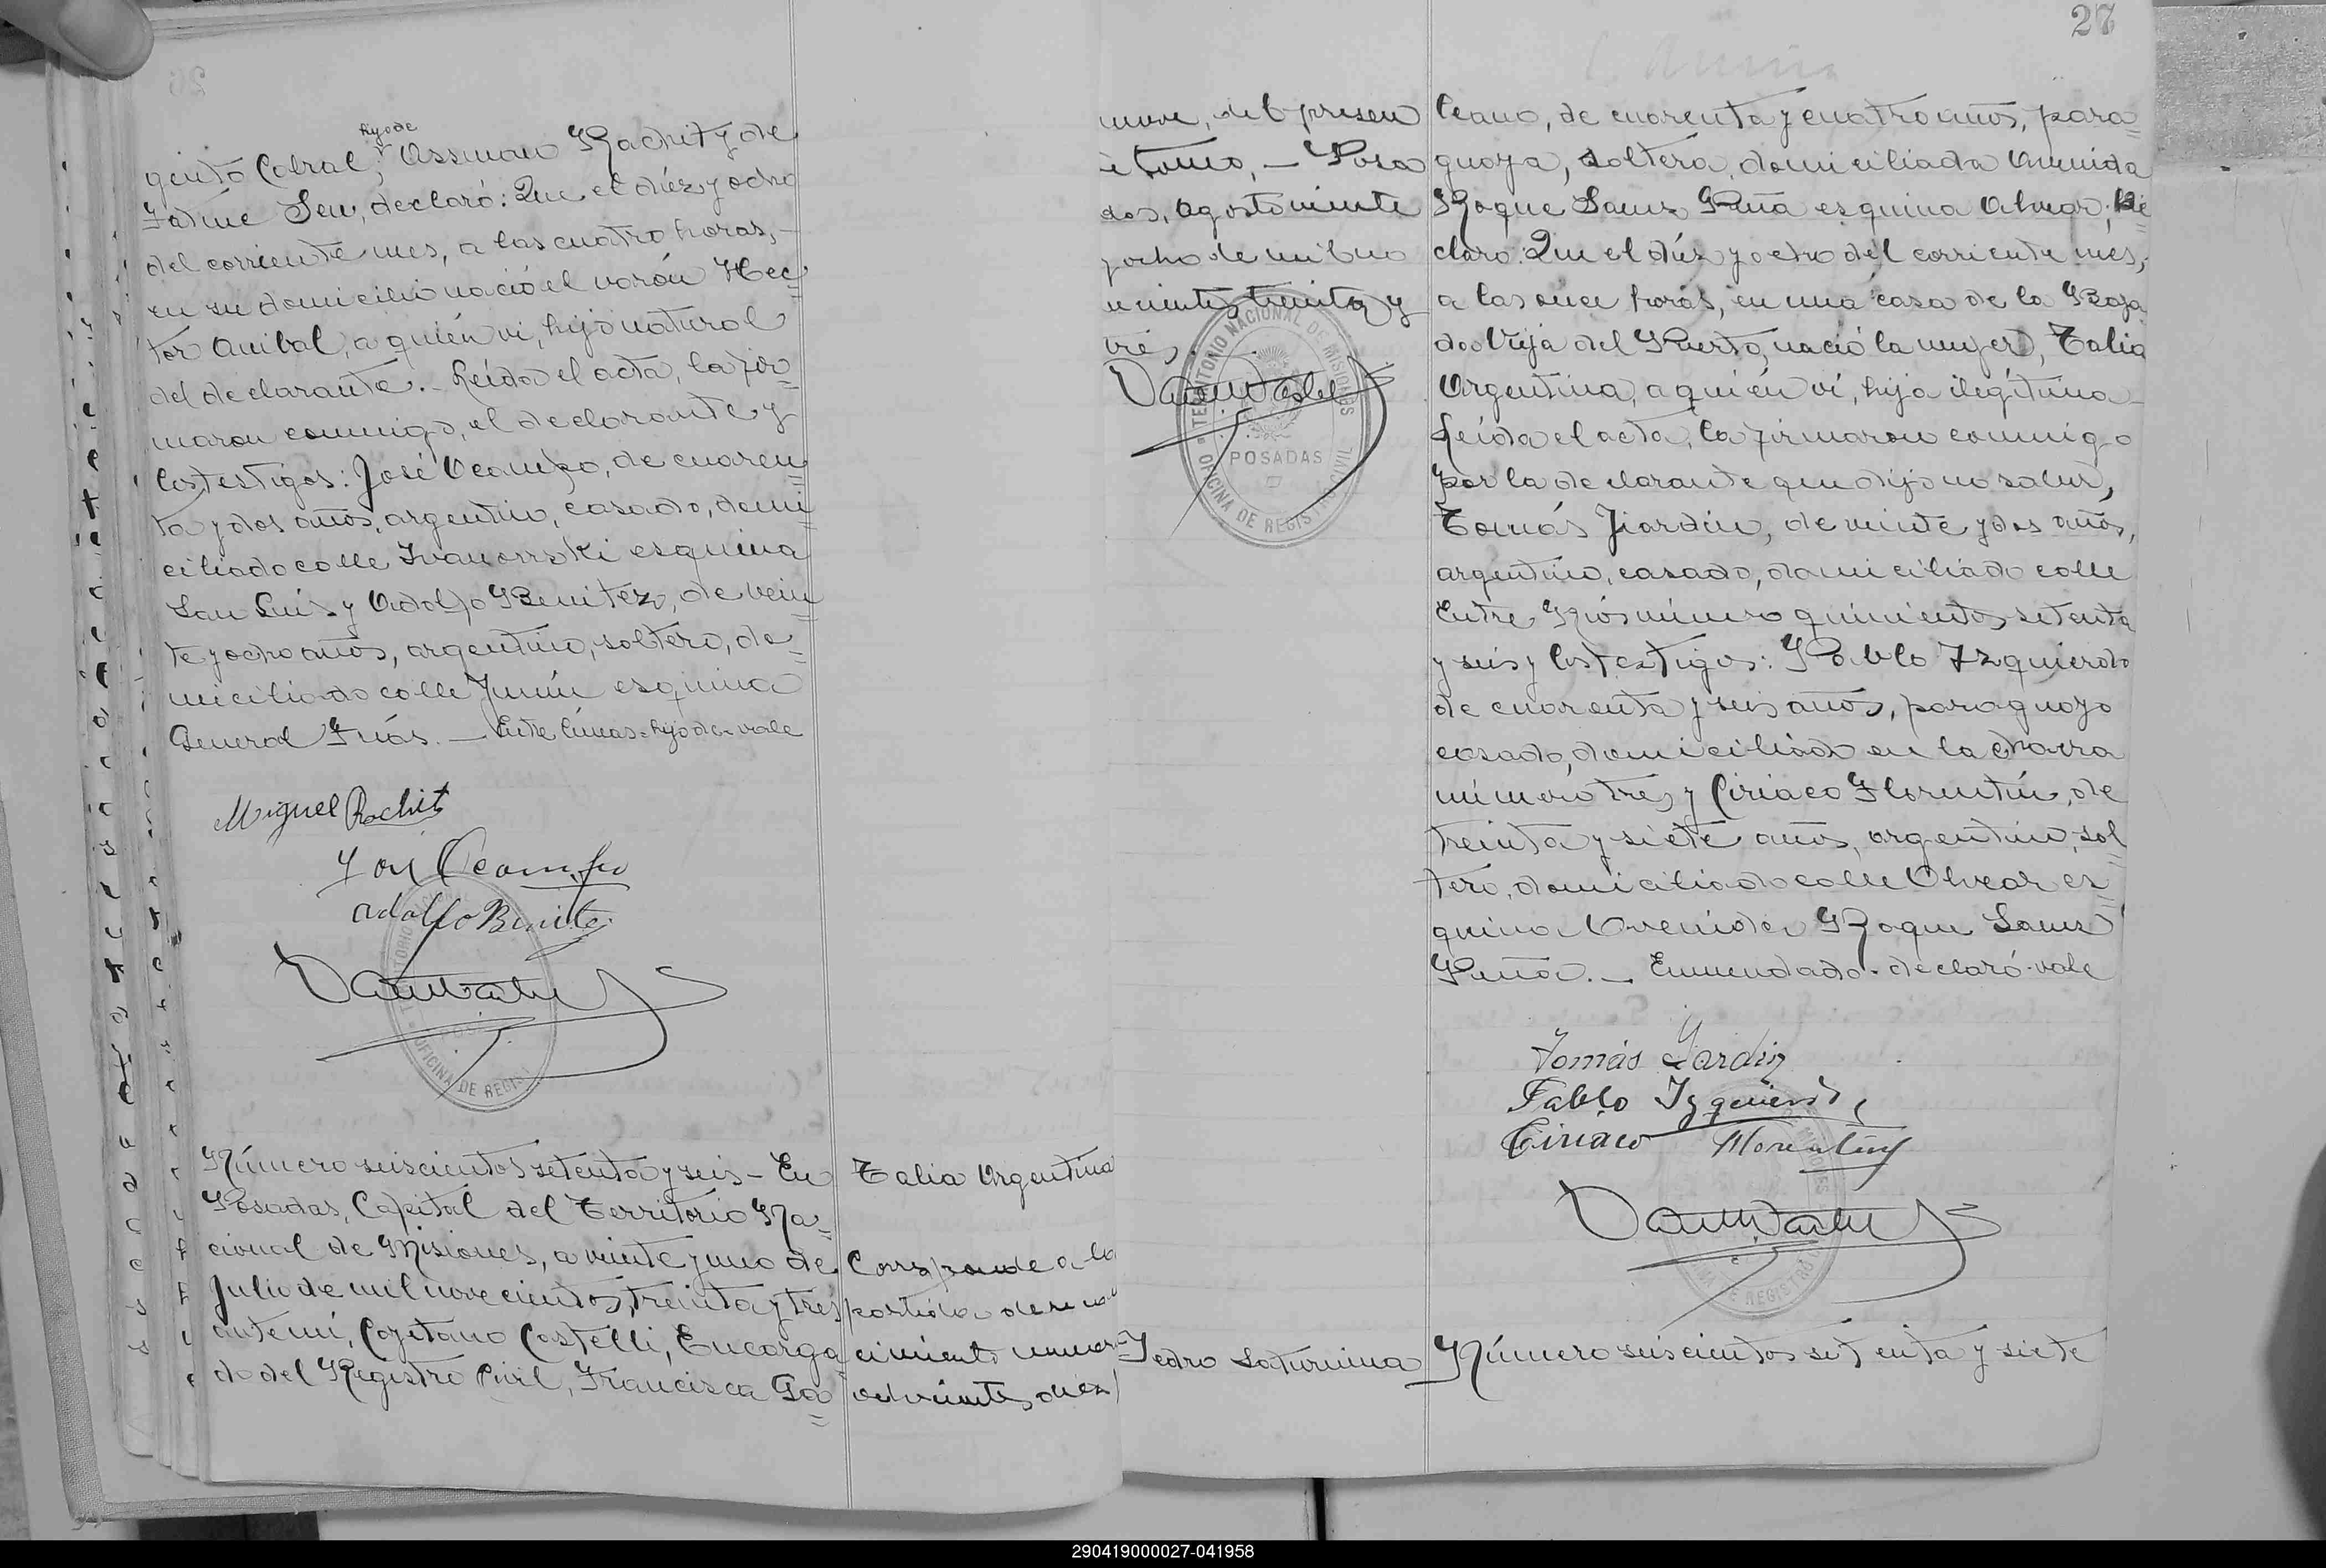 hijo de
gento Cabral; Assman Rachit y de
Fatme Seu, declaró: Que el diéz y ocho
del corriente mes, a las cuatro horas,-
en su domicilio nació el varón Hec=
tor Anibal, a quién vi, hijo natural
del declarante.- Leída el acta, la fir=
maron conmigo, el declarante y
los testigos: José Ocampo, de cuaren=
ta y dos años, argentino, casado, domi=
ciliado calle Ivanowski esquina
San Luis y Adolfo Benitez, de vein=
te y ocho años, argentino, soltero, do=
miciliado calle Junín esquina
General Frías.- Entre líneas-hijo de-vale
Miguel Rachit
José Ocampo
Adolfo Benitez
TERRITORIO
OFICINA DE REGIS
Número seiscientos setenta y seis- En
Posadas, Capital del Territorio Na=
cional de Misiones, a veinte y uno de
Julio de mil novecientos treinta y tres
ante mí, Cayetano Castelli, Encarga
do del Registro Civil, Francisca Ga=
Talia Argentina
Corresponde a la
partida de reno
cimiento numero
ochocientos diez
nueve, del presen
te tomo,- Posa
das, Agosto veinte
y ocho de mil no
vecientos treinta y
tres.
TERRITORIO NACIONAL DE MISIONES
POSADAS
OFICINA DE REGISTRO CIVIL
Pedro Saturnina
27
leano, de cuarenta y cuatro años, para=
guaya, soltera, domiciliada Avenida
Roque Saenz Peña esquina Alvear, de=
claró: Que el diéz y ocho del corriente mes,
a las once horas, en una casa de la Baja
da Vieja del Puerto, nació la mujer, Talia
Argentina, a quién ví, hija ilegítima-
Leída el acta, la firmaron conmigo
por la declarante que dijo no saber,
Tomás Jiardin, de veinte y dos años,
argentino, casado, domiciliado calle
Entre Ríos número quinientos setenta
y seis y los testigos: Pablo Izquierdo
de cuarenta y seis años, paraguayo
casado, domiciliado en la chacra
número tres y Ciriaco Florentín, de
treinta y siete años, argentino, sol=
tero, domiciliado calle Alvear es=
quina Avenida Roque Saenz
Peña.- Enmendado-declaró-vale
Tomás Jardin
Pablo Izquierdo
Ciriaco Florentin
MISIONES
DE REGISTRO
Número seiscientos setenta y siete
290419000027-041958